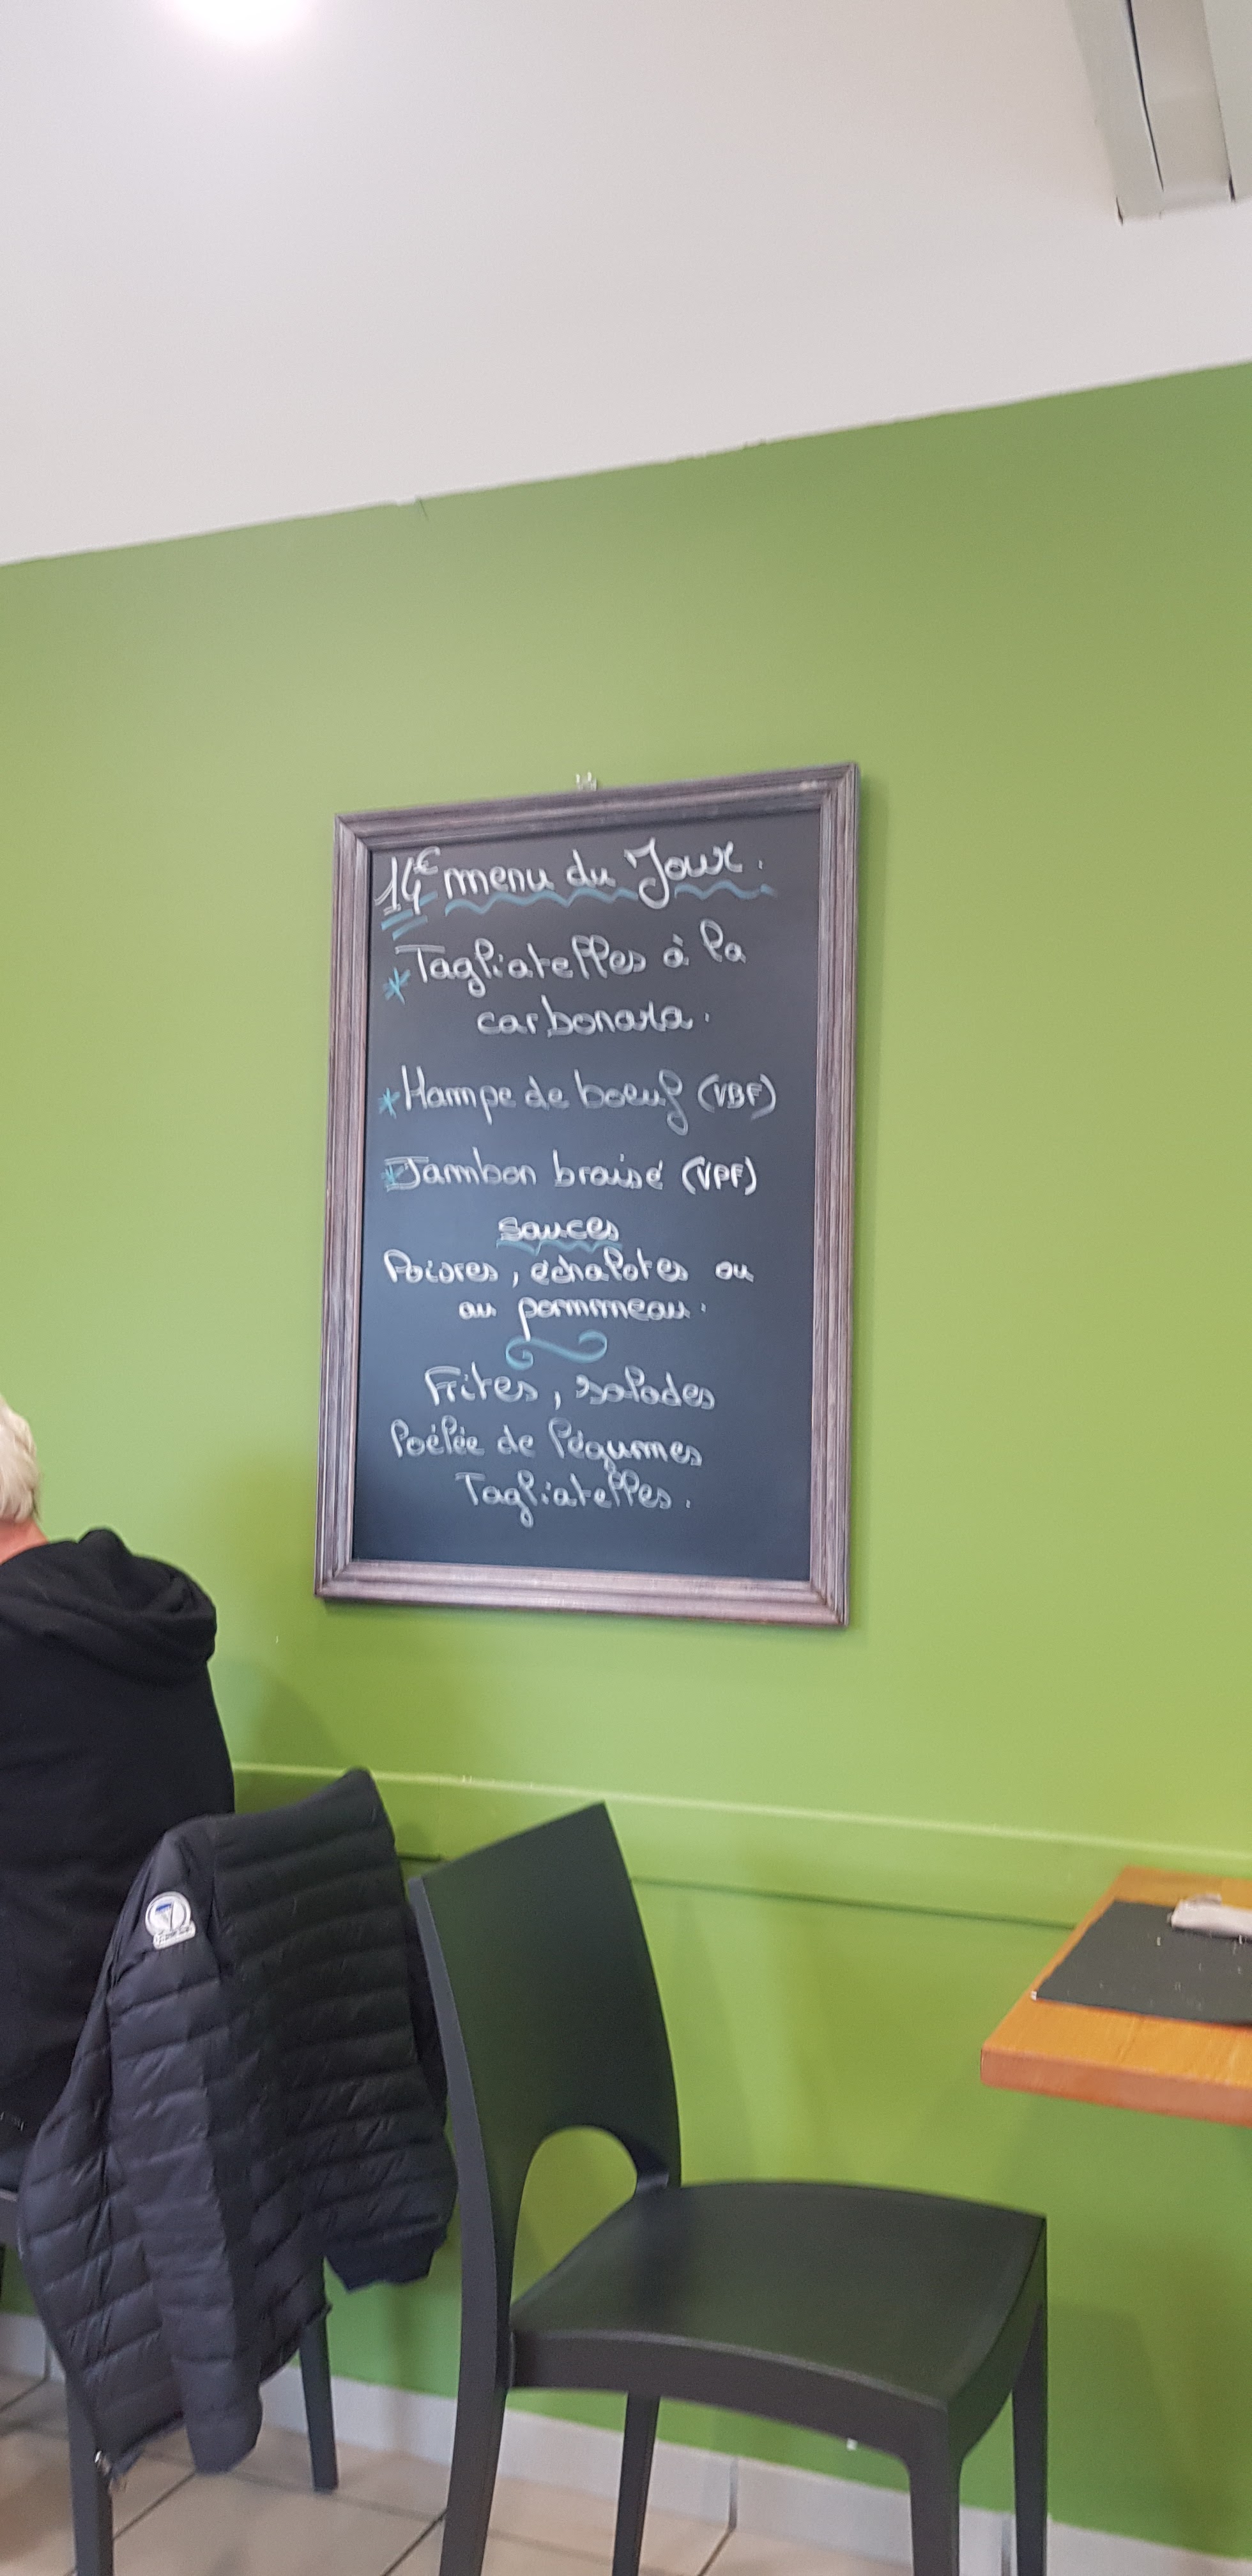 14€ menu du Jour.
* Tagliatelles à la
carbonara.
* Hampe de boeuf (VBF)
* Jambon braisé (VPF)
sauces
Poivres, échalotes ou
au pommeau.
Frites, salades
Poélée de légumes
Tagliatelles.